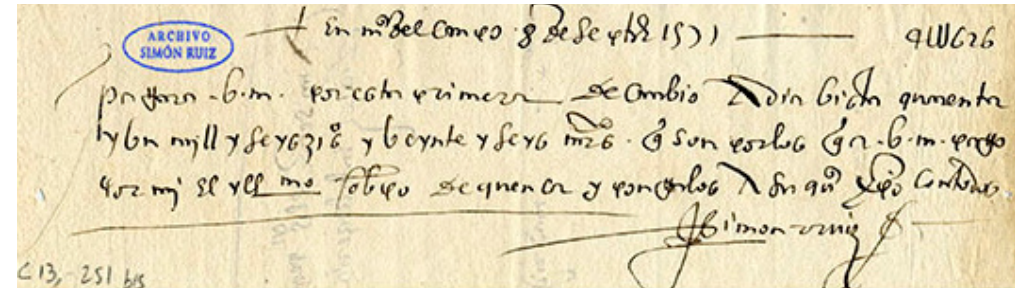 ARCHIVO
SIMÓN RUIZ
En mᵃ del campo 8 de septe 1571
41U626
pagara .b.m. por esta primera de cambio A dia bista quarenta
y un mill y seys⁠zis y beynte y seys mrs. q̃ son por los q̃ a .b.m. pago
por mi El yll mo obpo de quenca y pongalos A quº xpo con todos
Simon ruiz
C 13, - 251 bis